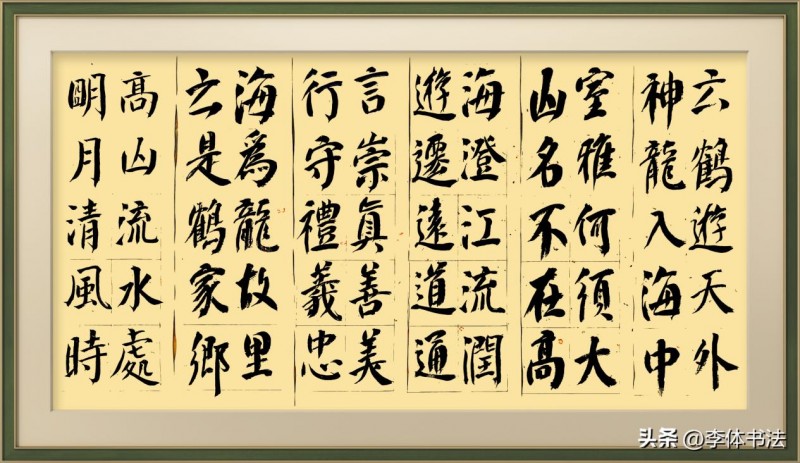 云鶴遊天外
神龍入海中
室雅何須大
山名不在高
海澄江流潤
遊遷遠道通
言崇眞善美
行守禮義忠
海爲龍故里
云是鶴家鄉
髙山流水處
明月清風時
头条 @李体书法